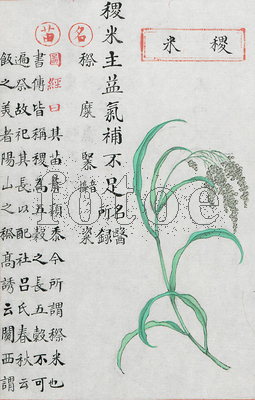 稷米
稷米主益氣補不足名醫所錄
名 穄 糜 粢
苗 圖經曰其苗黍今所謂穄米也
書傳皆稱稷為五穀之長五穀不可
遍祭故祀其長以配社呂氏春秋云
飯之美者陽山之穄高誘云關西謂
fotoe